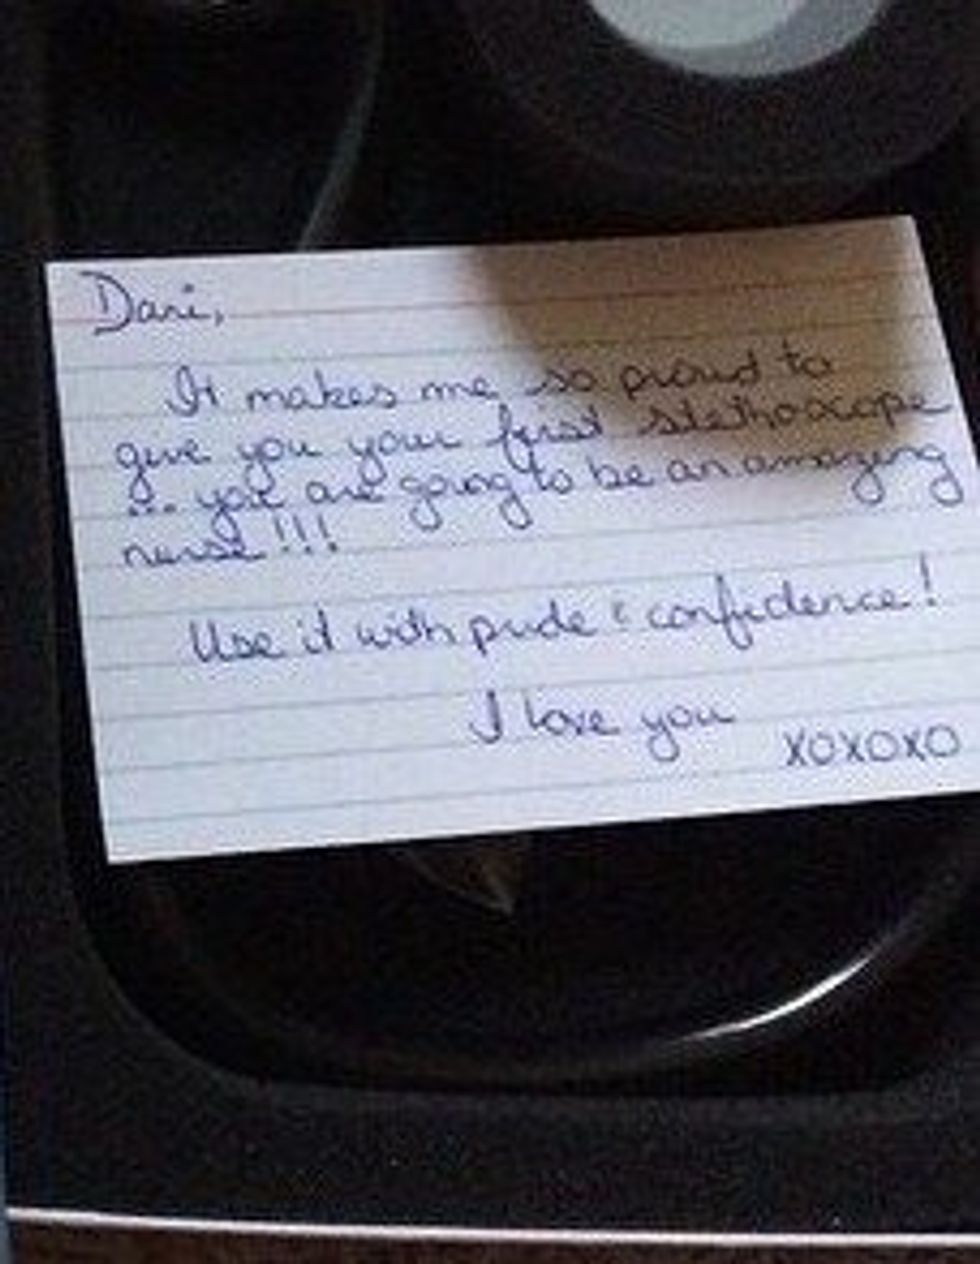 Dari,
It makes me so proud to
give you your first stethoscope
... you are going to be an amazing
nurse!!!
Use it with pride & confidence!
I love you
XOXOXO